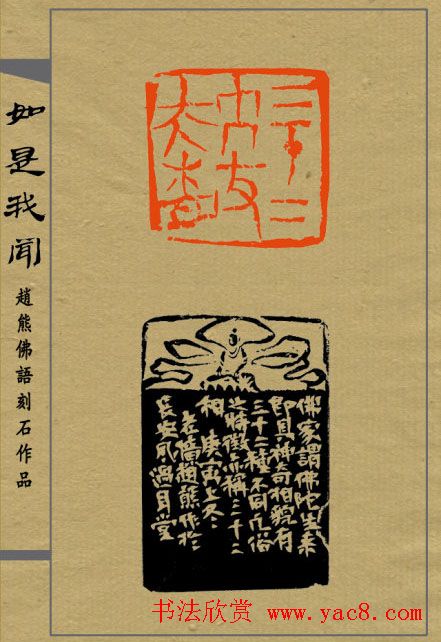 如是我聞
趙熊佛語刻石作品
三十二
佛家謂佛陀生來
即具神奇相貌有
三十二種不同凡俗
之特徵亦稱三十二
相 庚寅上冬
趙熊作於
長安風過耳堂
书法欣赏 www.yac8.com